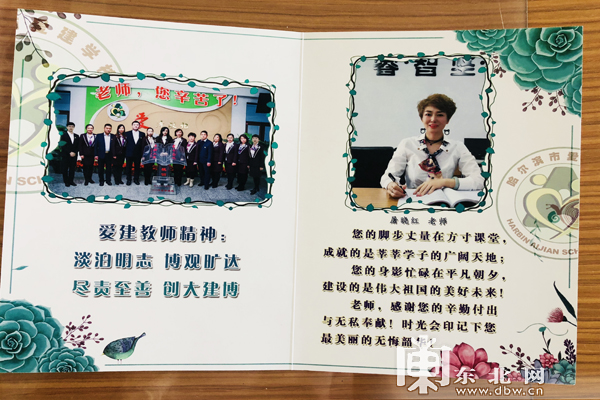 老师,您辛苦了!
爱建教师精神:
淡泊明志 博观旷达
尽责至善 创大建博
睿智坚
屠晓红 老师
您的脚步丈量在方寸课堂,
成就的是莘莘学子的广阔天地;
您的身影忙碌在平凡朝夕,
建设的是伟大祖国的美好未来!
老师,感谢您的辛勤付出
与无私奉献!时光会印记下您
最美丽的无悔韶华!
哈尔滨市爱
HARBIN AIJIAN SCH
东北网
www.dbw.cn